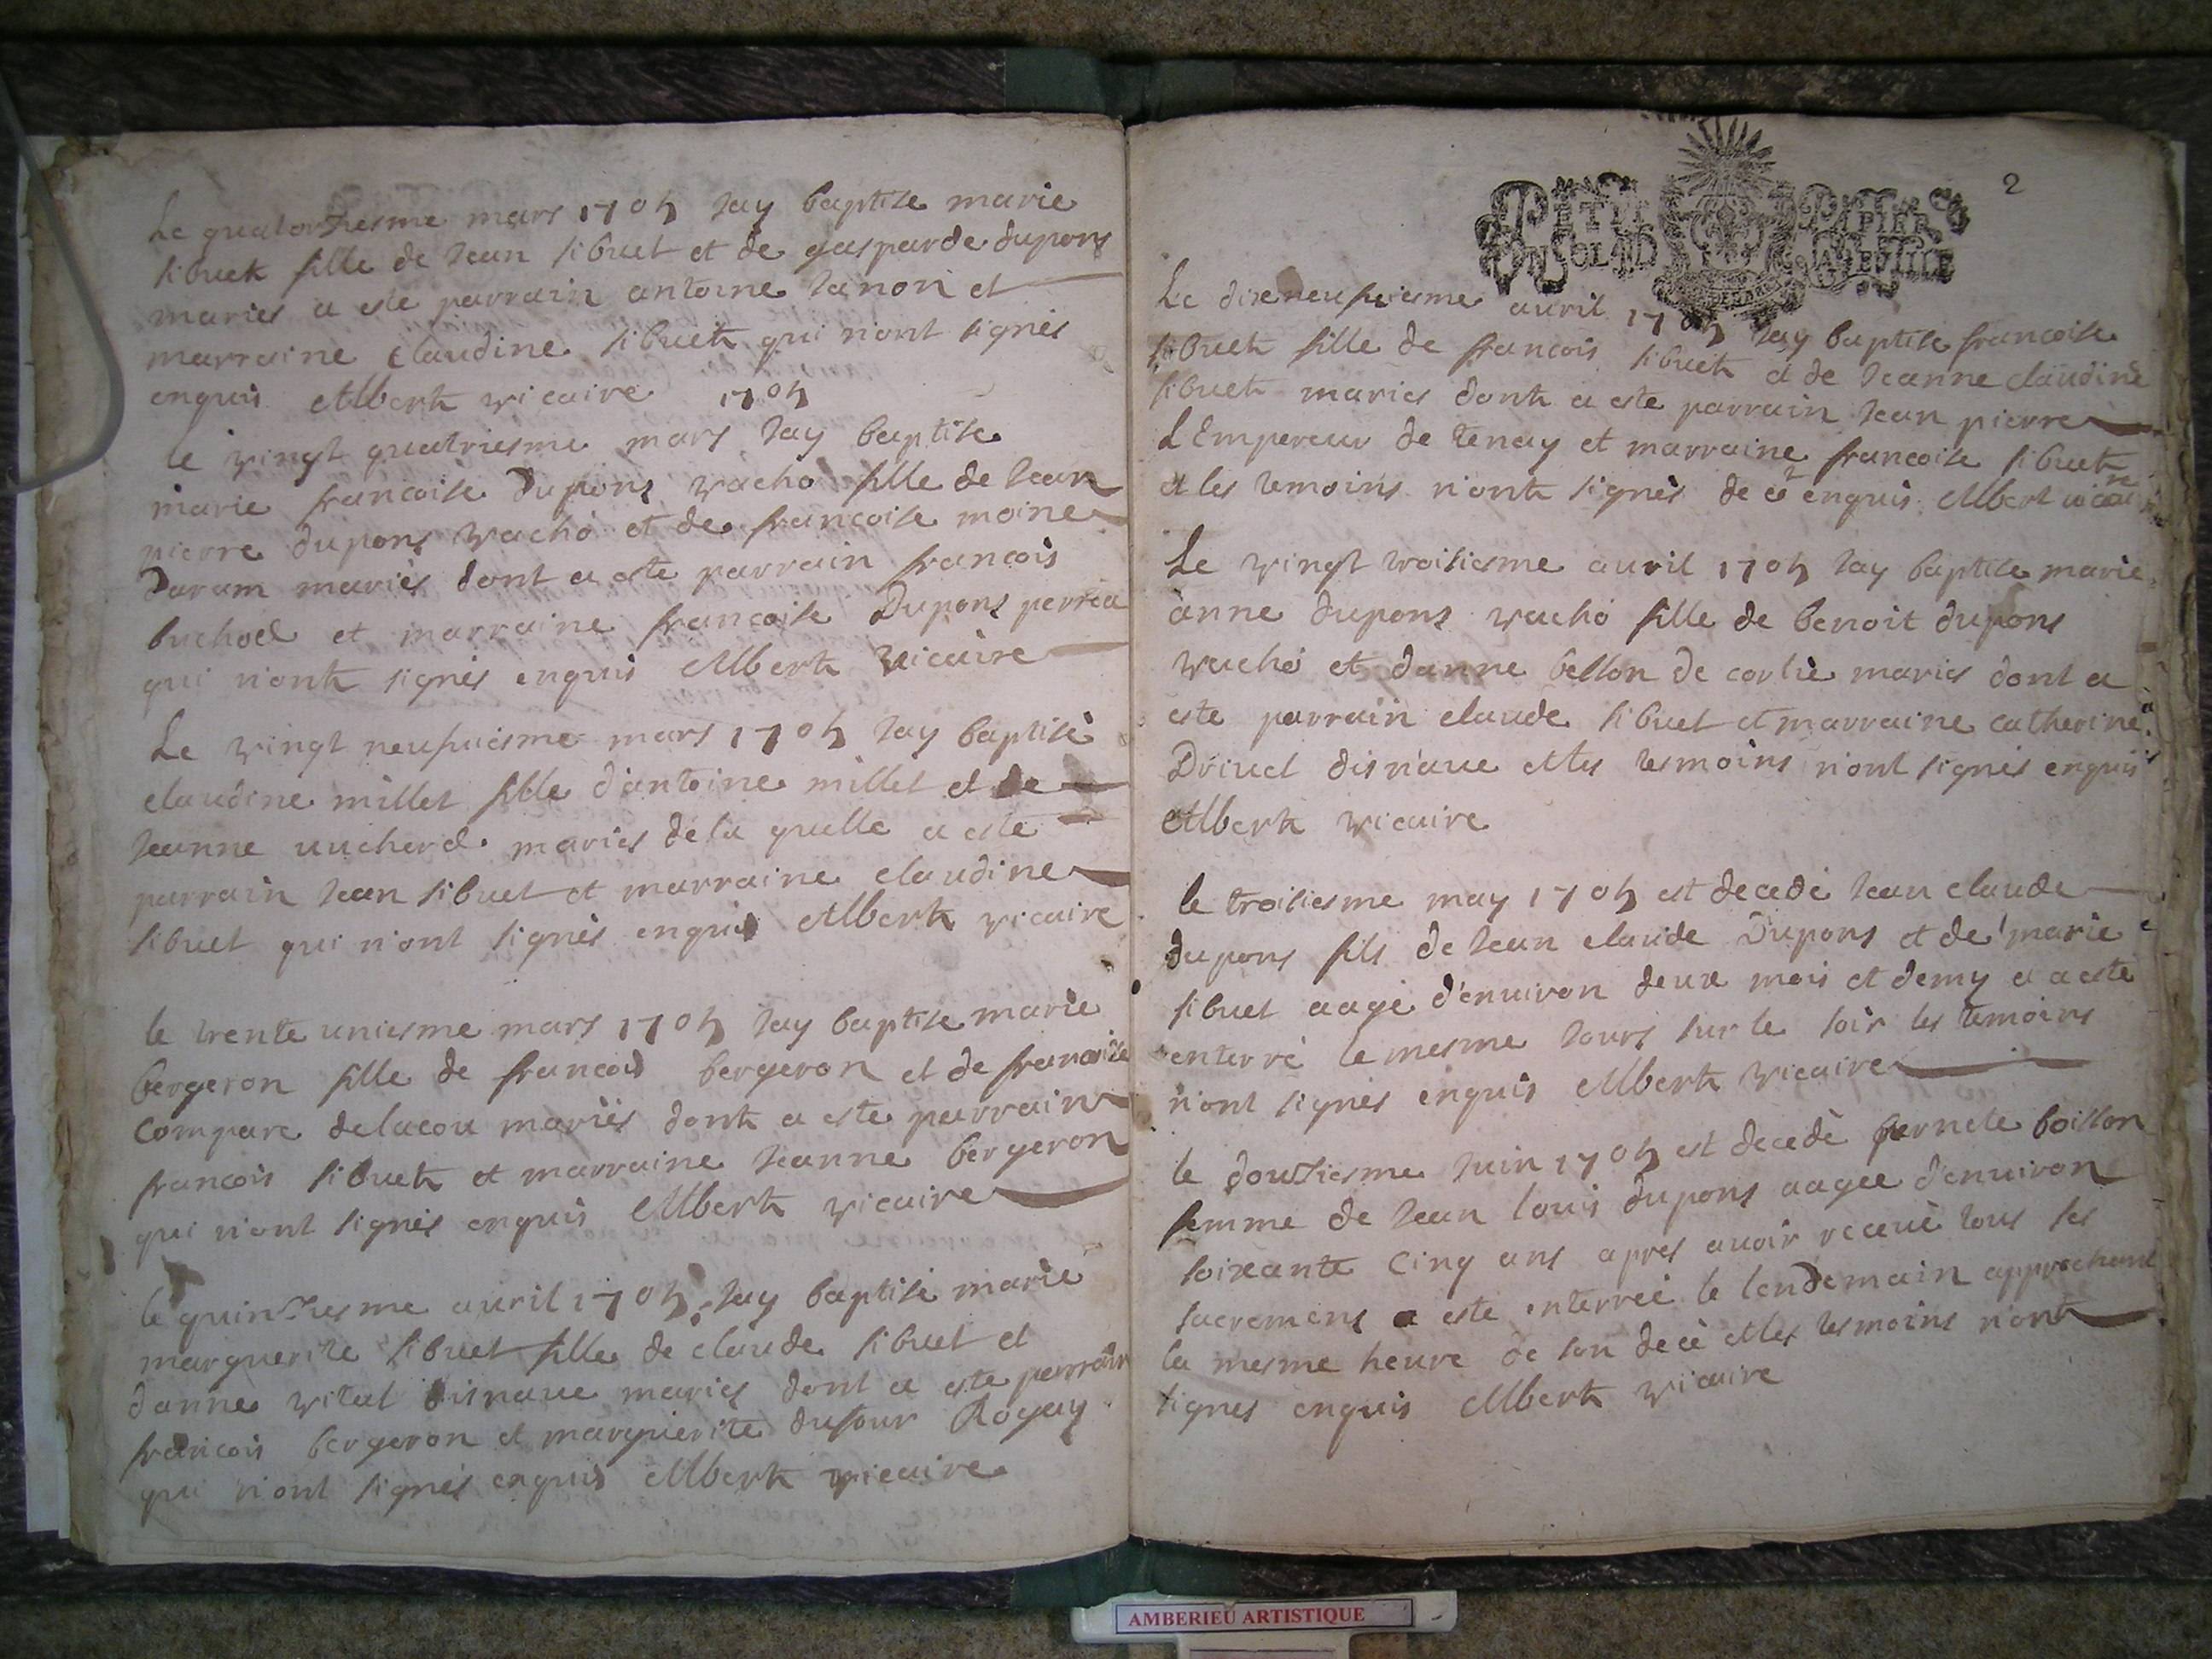 Le quatorziesme mars 1705 Jay baptise marie
sibuet fille de Jean sibuet et de gasparde dupons
maries a este parrain antoine Janon et
marraine claudine sibuet qui n'ont signés
enquis Albert vicaire 1705
le vingt quatriesme mars Jay baptise
marie francoise dupons vacho fille de Jean
pierre dupons vacho et de francoise moine
Daram mariés dont a este parrain francois
buchod et marraine francoise Dupons
qui n'ont signés enquis Albert vicaire
Le vingt neufuiesme mars 1705 Jay baptisé
claudine millet fille d'antoine millet et de
Jeanne mariés de la quelle a este
parrain Jean sibuet et marraine claudine
sibuet qui n'ont signés enquis Albert vicaire
le trente uniesme mars 1705 Jay baptise marie
bergeron fille de francois bergeron et de francoise
compare delacou mariés dont a este parrain
francois sibuet et marraine Jeanne bergeron
qui n'ont signés enquis Albert vicaire
le quinziesme auril 1705 Jay baptisé marie
marguerite sibuet fille de claude sibuet et
danne vital disnaue mariés dont a este parrain
francois bergeron et marguerite dufour Rogay
qui n'ont signés enquis Albert vicaire
2
PETIT PAPIER
Le dixneufuiesme auril 1705 Jay baptise francoise
sibuet fille de francois sibuet et de Jeanne claudine
sibuet maries dont a este parrain Jean pierre
L'Empereur de tenay et marraine francoise sibuet
et les temoins n'ont signés de ce enquis Albert vicaire
Le vingt troisiesme auril 1705 Jay baptise marie
anne dupons vacho fille de benoit dupons
vacho et danne bellon de corlie maries dont a
este parrain claude sibuet et marraine catherine
Driuet disnaue et les tesmoins n'ont signés enquis
Albert vicaire
le troisiesme may 1705 est decedé Jean claude
dupons fils de Jean claude Dupons et de marie
sibuet aagé d'enuiron deux mois et demy et a este
enterré le mesme Jours sur le soir les temoins
n'ont signés enquis Albert vicaire
le douziesme Juin 1705 est decedé pernete boisson
femme de Jean louis dupons aagee d'enuiron
soixante cinq ans apres auoir receuë tous ses
sacremens a este enterreé le lendemain approchant
la mesme heure de son decé et les tesmoins n'ont
signés enquis Albert vicaire
AMBERIEU ARTISTIQUE